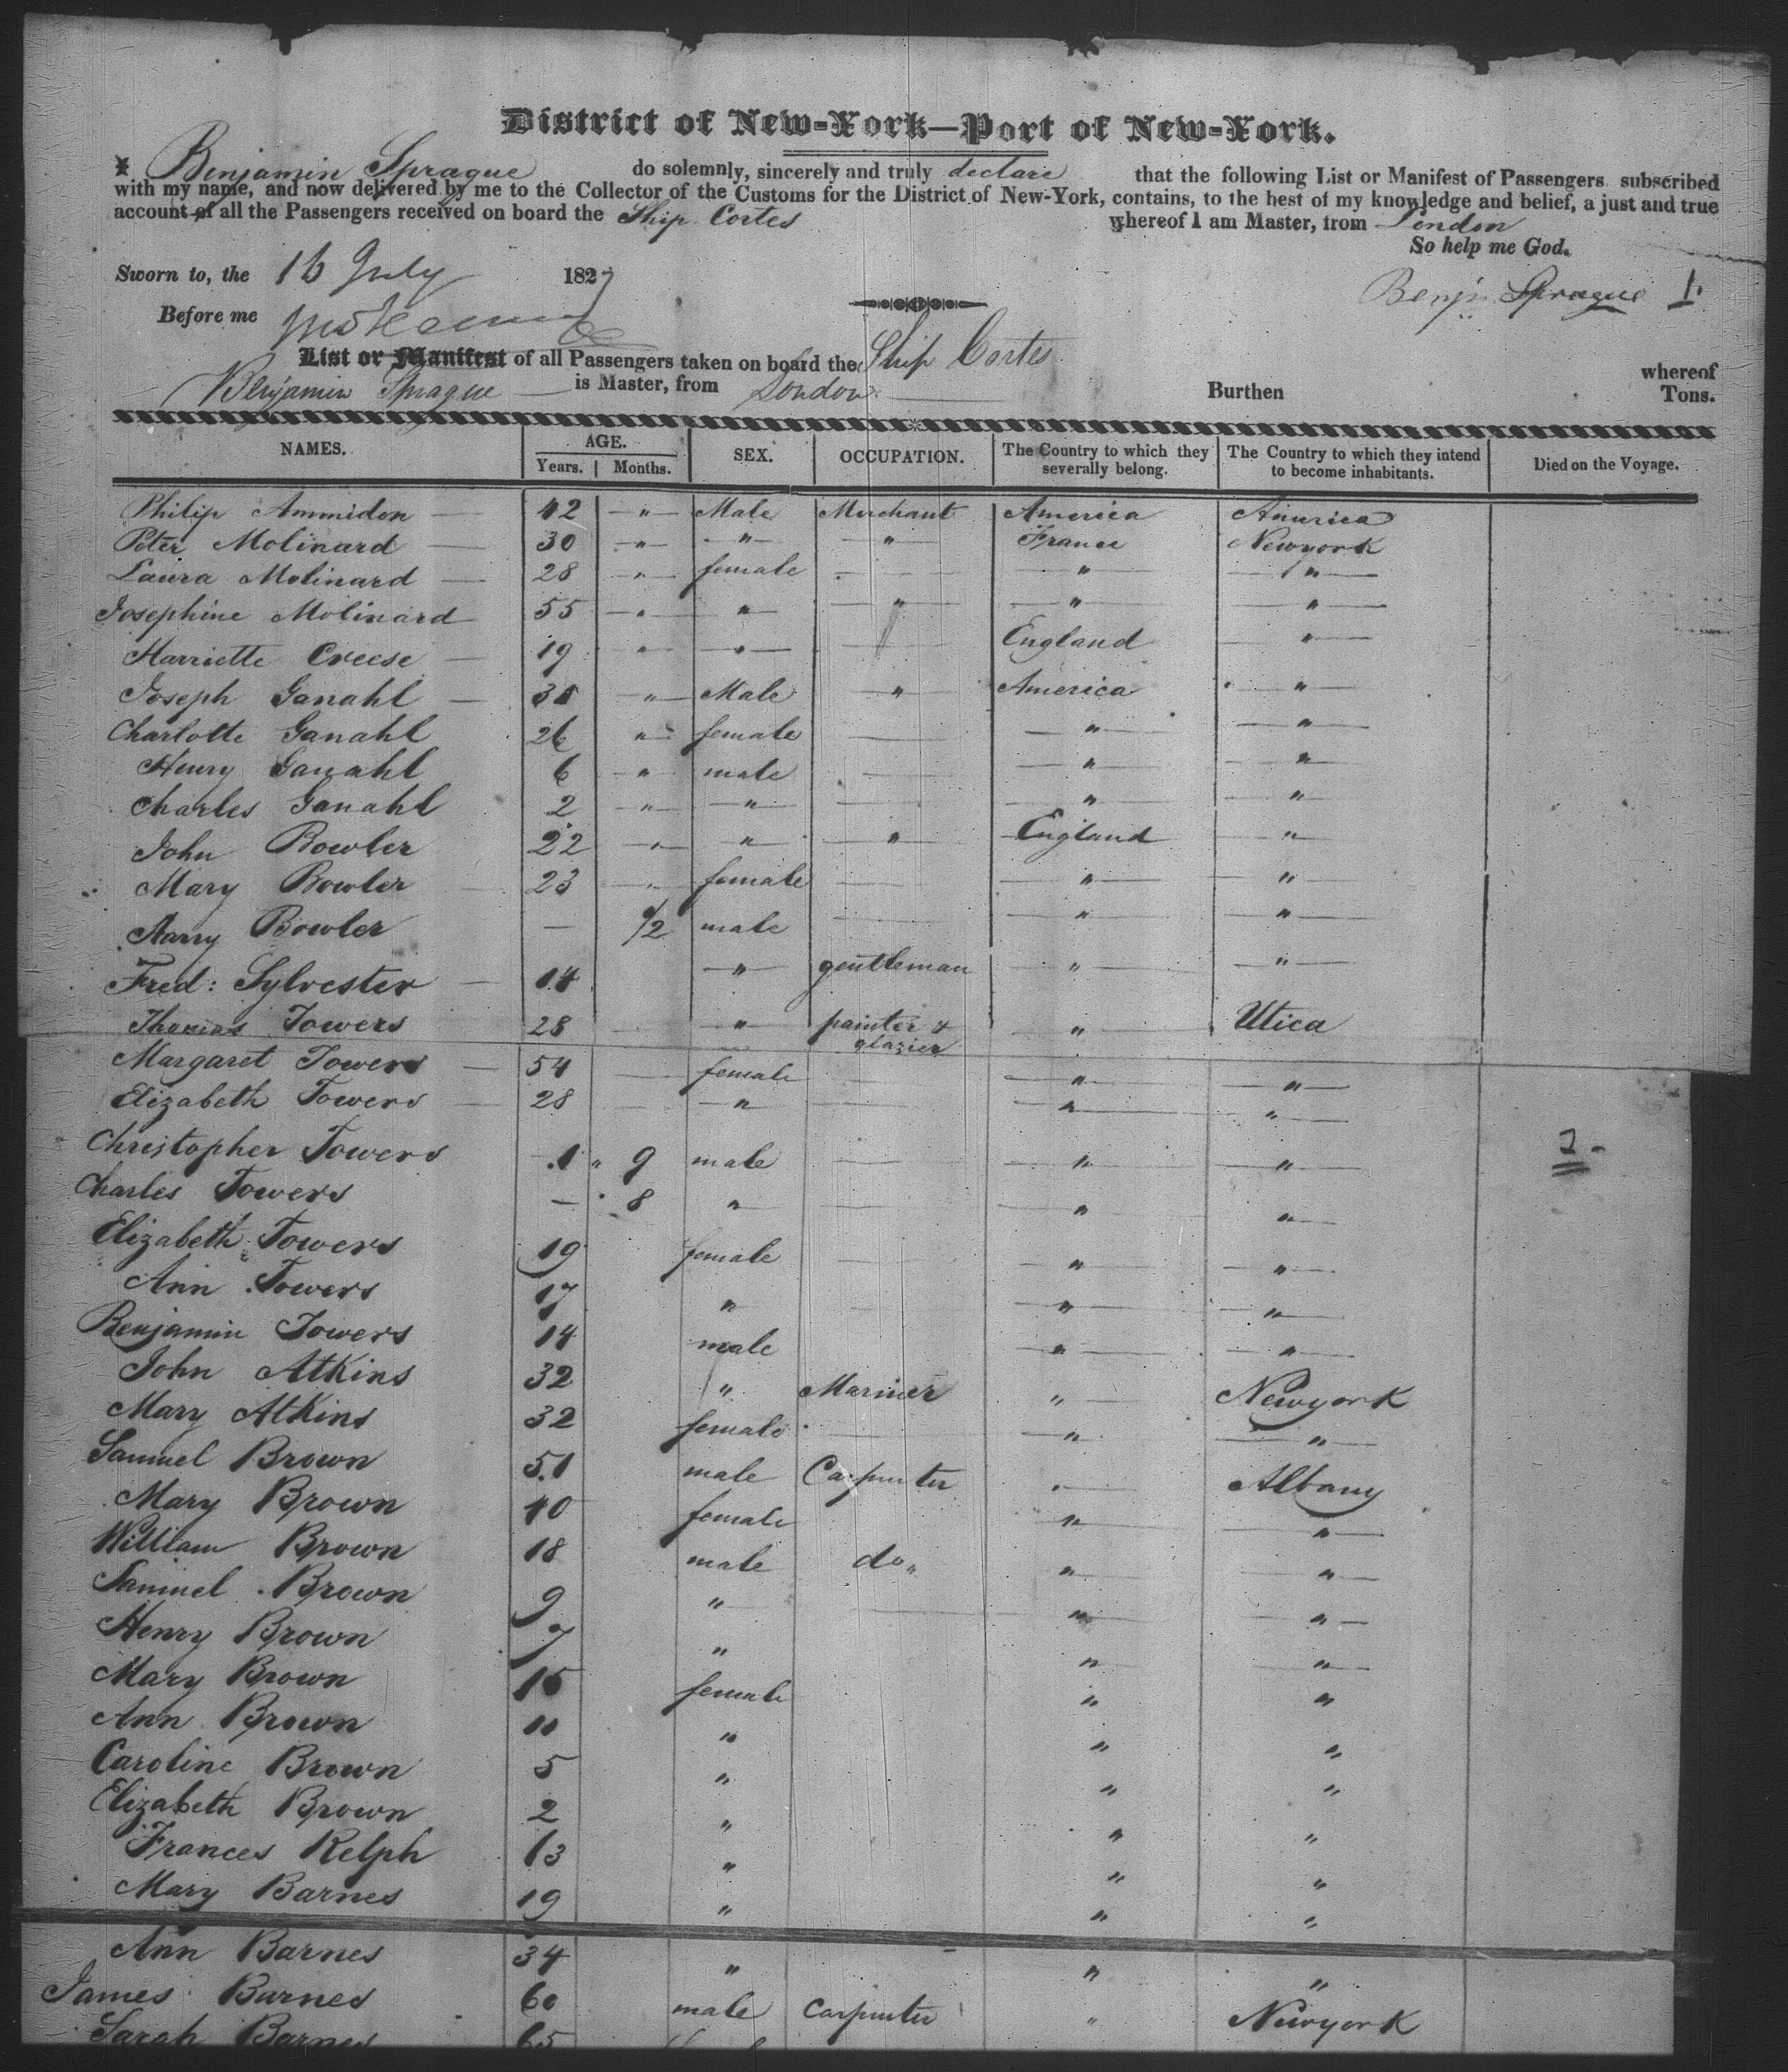 District of New-York—Port of New-York.
I Benjamin Sprague do solemnly, sincerely and truly declare that the following List or Manifest of Passengers subscribed
with my name, and now delivered by me to the Collector of the Customs for the District of New-York, contains, to the best of my knowledge and belief, a just and true
account of all the Passengers received on board the Ship Cortes whereof I am Master, from London
So help me God.
Sworn to, the 16 July 1827
Benjn Sprague 1.
Before me
List or Manifest of all Passengers taken on board the Ship Cortes whereof
Benjamin Sprague is Master, from London Burthen Tons.
NAMES. AGE. Years. Months. SEX. OCCUPATION. The Country to which they severally belong. The Country to which they intend to become inhabitants. Died on the Voyage.
Philip Ammidon — 42 — " — Male Merchant America America
Peter Molinard — 30 — " — — " — — " — France Newyork
Laura Molinard — 28 — " — female — — " — — " —
Josephine Molinard 55 — " — " — — " — — " — — " —
Harriette Creese — 19 " — " — — England — " —
Joseph Ganahl — " — Male — " — America — " —
Charlotte Ganahl 26 " female — — " — — " —
Henry Ganahl 6 — " — male — — " — — " —
Charles Ganahl 2 — " — — " — — — " — "
John Bowler 22 — " — — " — " England — " —
Mary Bowler 23 — " — female — — " — — " —
Harry Bowler — /2 male — — " — — " —
Fred: Sylvester — 14 — " — gentleman — " — — " —
Thomas Towers 28 — — " — painter & " Utica
glazier
Margaret Towers — 54 — female — — " — — " —
Elizabeth Towers — 28 — — " — — — " — — " —
Christopher Towers 1 " 9 male — — " — — " — 2 -
Charles Towers — " 8 " — — " — — " —
Elizabeth Towers 19 female — — " — — " —
Ann Towers 17 " — — " — — " —
Benjamin Towers 14 male — " — — " —
John Atkins 32 " Mariner — " — Newyork
Mary Atkins 32 female — — " — — " —
Samuel Brown 51 male Carpenter " — Albany
Mary Brown 40 female — " — — " —
William Brown 18 male do " — " — — " —
Samuel Brown 9 " — — " — — " —
Henry Brown 7 " " — — " —
Mary Brown female " "
Ann Brown 11 " " "
Caroline Brown 5 " " "
Elizabeth Brown 2 " " "
Frances Relph 13 " " "
Mary Barnes 19 " " "
Ann Barnes 34 " " "
James Barnes 60 male Carpenter " Newyork
Sarah Barnes 65